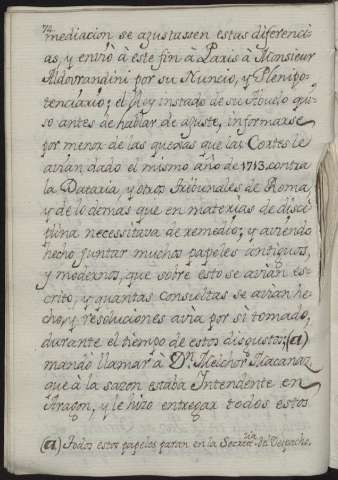 72
mediacion se azustassen estas diferenci-
as, y envio à este fin à Paris à Monsieur
Aldovrandini por su Nuncio, y Plenipo-
tenciario; el Rey instado de su Abuelo qui-
so antes de hablar de ajuste, informarse
por menor de las quexas que las Cortes le
avian dado el mismo año de 1713. contra
la Dataria, y otros Tribunales de Roma
y de lo demas que en materias de disci-
plina necessitava de remedio; y aviendo
hecho juntar muchos papeles antiguos,
y modernos, que sobre esto se avian es-
crito, y quantas consultas se avian he-
cho, y resoluciones avia por si tomado,
durante el tiempo de estos disgustos; (a)
mandò llamar à Dn. Melchor Macanaz
que à la sazon estaba Intendente en
Aragon, y le hizo entregar todos estos
(a) Todos estos papeles paran en la Secreta.ria del Despacho.